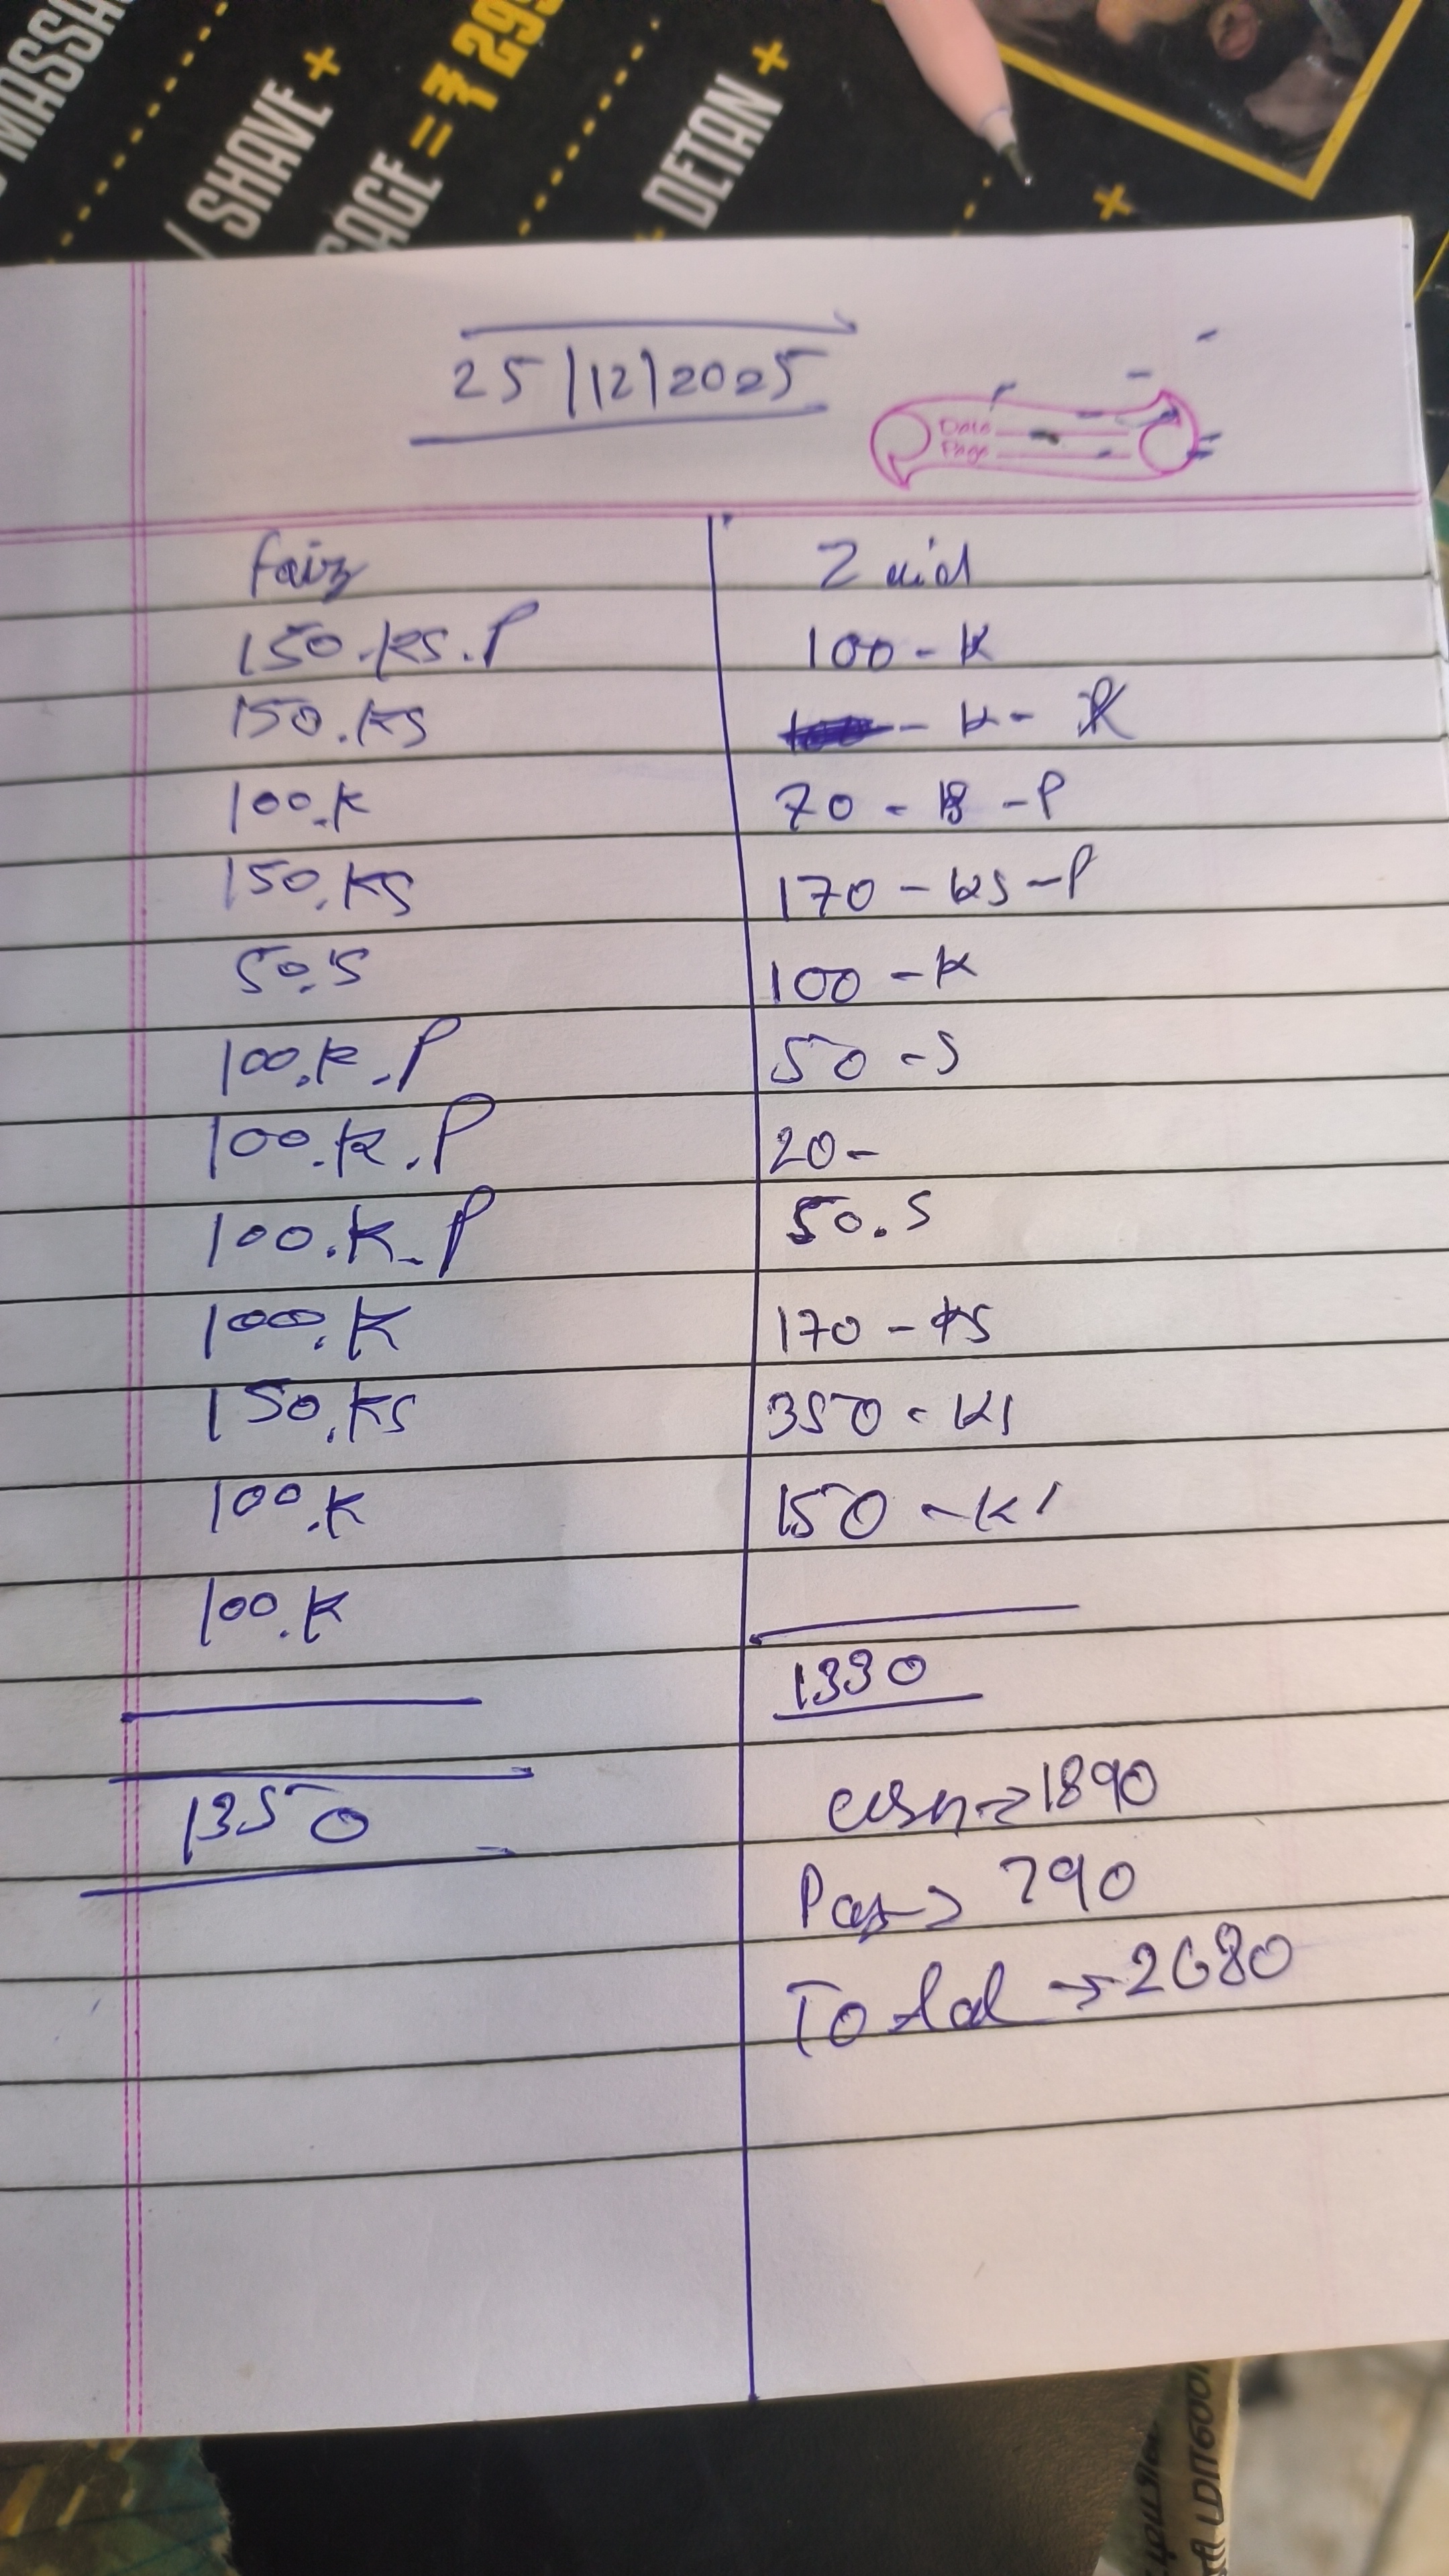 MASSA
/ SHAVE +
SAGE = ₹ 299
DETAN +
25/12/2025
Date
Page
faiz
150.KS.P
150.KS
100.K
150.KS
50.S
100.K.P
100.K.P
100.K.P
100.K
150.KS
100.K
100.K
1350
Zaid
100-K
- K-
70 - - P
170 - KS - P
100 - K
50 - S
20 -
50.S
170 - KS
350 - KS
150 - KS
1330
cash → 1890
Pay → 790
Total → 2680